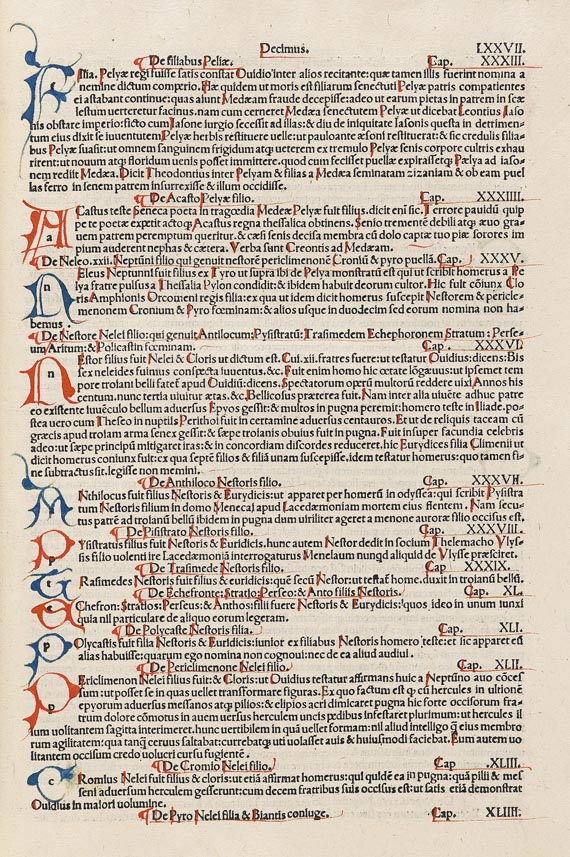 Decimus. LXXVII.
De filiabus Peliæ. Cap. XXXIII.
Filia. Pelyæ regi fuisse satis constat Ouidio inter alios recitante: quæ tamen illis fuerint nomina a
nemine dictum comperio. Hæ quidem ut moris est filiarum senectuti Pelyæ patris compatientes
ei astabant continue: quas aiunt Medeam fraude decepisse: adeo ut earum pietas in patrem in scæ
lestum uerteretur facinus. nam cum cerneret Medea senectutem Pelyæ ut dicebat Leontius Iaso
nis obstare imperio: ficto cum Iasone iurgio secessit ad illas: & diu de iniquitate Iasonis questa in detrimen
tum eius dixit se iuuentutem Pelyæ herbis restituere uelle: ut paulo ante æsoni restituerat: & sic credulis filia
bus Pelyæ suasit: ut omnem sanguinem frigidum atque ueterem ex tremulo Pelyæ senis corpore cultris exhau
rirent: ut nouum atque floridum uenis posset immittere. quod cum fecissent puellæ expirassetque Pælya ad iaso/
nem rediit Medea. Dicit Theodontius inter Pelyam & filias a Medea seminatam zizaniam & ob eam puel
las ferro in senem patrem insurrexisse & illum occidisse.
De Acasto Pelyæ filio. Cap. XXXIIII.
ACastus teste Seneca poeta in tragœdia Medeæ Pelyæ fuit filius. dicit eni sic. Terrore pauidū quip
pe te poteæ expetit actoque Acastus regna thessalica obtinens. Senio tremente debili atque æuo gra/
uem patrem peremptum queritur. & cæsi senis decisa membra cū dolo captæ tuo piæ sorores im
pium auderent nephas & cætera. Verba sunt Creontis ad Medæam.
De Neleo .xxii. Neptūni filio qui genuit nestorē periclimonē Croniū & pyro puellā. Cap. XXXV.
NEleus Neptunni fuit filius ex Tyro ut supra ubi de Pelya monstratū est qui ut scribit homerus a Pe
lya fratre pulsus a Thessalia Pylon condidit: & ibidem habuit deorum cultor. Hic fuit cōiunx Clo
ris Amphionis Orcomeni regis filia: ex qua ut idem dicit homerus suscepit Nestorem & pericle/
menonem Cronium & Pyro fœminam: & alios usque in duodecim sed eorum nomina non ha/
bemus.
De Nestore Nelei filio: qui genuit. Antilocum: Pysistratū: Trasimedem Echephoronem Stratum: Perse/
um Aritum: & Policastin fœminam. Cap. XXXVI.
NEstor filius fuit Nelei & Cloris ut dictum est. Cui .xii. fratres fuere: ut testatur Ouidius: dicens: Bis
sex neleides fuimus conspecta iuuentus. &c. Fuit enim homo hic œtate lōgæuus: ut ipsemet tem
pore troiani belli fatet apud Ouidiū: dicens. Spectatorum operū multorū reddere uixi Annos bis
centum. nunc tertia uiuitur ætas. &c. Bellicosus præterea fuit. Nam inter alia uiuēte adhuc patre
eo existente iuuēculo bellum aduersus Epyos gessit: & multos in pugna peremit: homero teste in Iliade. po/
stea uero cum Theseo in nuptiis Perithoi fuit in certamine aduersus centauros. Et ut de reliquis taceam cū
græcis apud troiam arma senex gessit: & sæpe troianis obuius fuit in pugna. Fuit insuper facundia celebris
adeo: ut sæpe principū mitigaret iras: & in concordiam discordes reduceret. hic Eurydices filia Climenii ut
dicit homerus coniunx fuit: ex qua septē filios & filiā unam suscepisse. idem testatur homerus: quo tamen fi/
ne subtractus sit. legisse non memini.
De Anthiloco Nestoris filio. Cap. XXXVII.
ANthilocus fuit filius Nestoris & Eurydicis: ut apparet per homerū in odyssea: qui scribit Pysistra
tum Nestoris filium in domo Menecaļ apud Lacedæmoniam mortem eius flentem. Nam secu/
tus patrē ad troianū belliū ibidem in pugna dum uiriliter ageret a menone auroræ filio occisus est.
De Pisistrato Nestoris filio. Cap. XXXVIII.
PYsistratus filius fuit Nestoris & Euridicis. hunc autem Nestor dedit in socium Thelemacho Vlys/
sis filio uolenti ire Lacedæmoniā interrogaturus Menelaum nunqd aliquid de Vlysse præsciret.
De Trasimede Nestoris filio. Cap. XXXIX.
TRasimedes Nestoris fuit filius & euridicis: quē secū Nestor: ut testat home. duxit in troianū bellū.
De Echefronte: Stratio: Perseo: & Anto filiis Nestoris. Cap. XL.
EChefron: Stratios: Perseus: & Anthos: filii fuere Nestoris & Eurydicis: quos ideo in unum iunxi
quia nil particulare de aliquo eorum legeram.
De Polycaste Nestoris filia. Cap. XLI.
POlycastis fuit filia Nestoris & Euridicis: iunior ex filiabus Nestoris homero teste: et sic apparet eū
alias habuisse: quarum ego nomina non cognoui: nec de ea aliud audiui.
De Periclimenone Nelei filio. Cap. XLII.
PEriclimenon Nelei filius fuit: & Cloris: ut Ouidius testatur affirmans huic a Neptūno auo cōces
sum: ut posset se in quas uellet transformare figuras. Ex quo factum est que cū hercules in ultionē
epyorum aduersus messanos atque pilios: & elipios acri dimicaret pugna hic forte occisorum fra/
trum dolore cōmotus in auem uersus herculem uncis pedibus infestaret plurimum: ut hercules il
lum uolitantem sagitta interimeret. hunc uertibilem in quā uellet formam: nil aliud intelligo que eius membro
rum agilitatem: qua tanque ceruus saltabat: currebatque uti uolasset auis & huiusmodi faciebat. Eum autem uo
litantem occisum credo uolucri cursu fugiente.
De Cromio Nelei filio. Cap. XLIII.
CRomius Nelei fuit filius & cloris: ut etiā affirmat homerus: qui quidē ea in pugna: quā pilii & mes
senii aduersum herculem gesserunt: cum decem fratribus suis occisus est: ut satis etiā demonstrat
Ouidius in maiori uolumine.
De Pyro Nelei filia & Biantis coniuge. Cap. XLIIII.